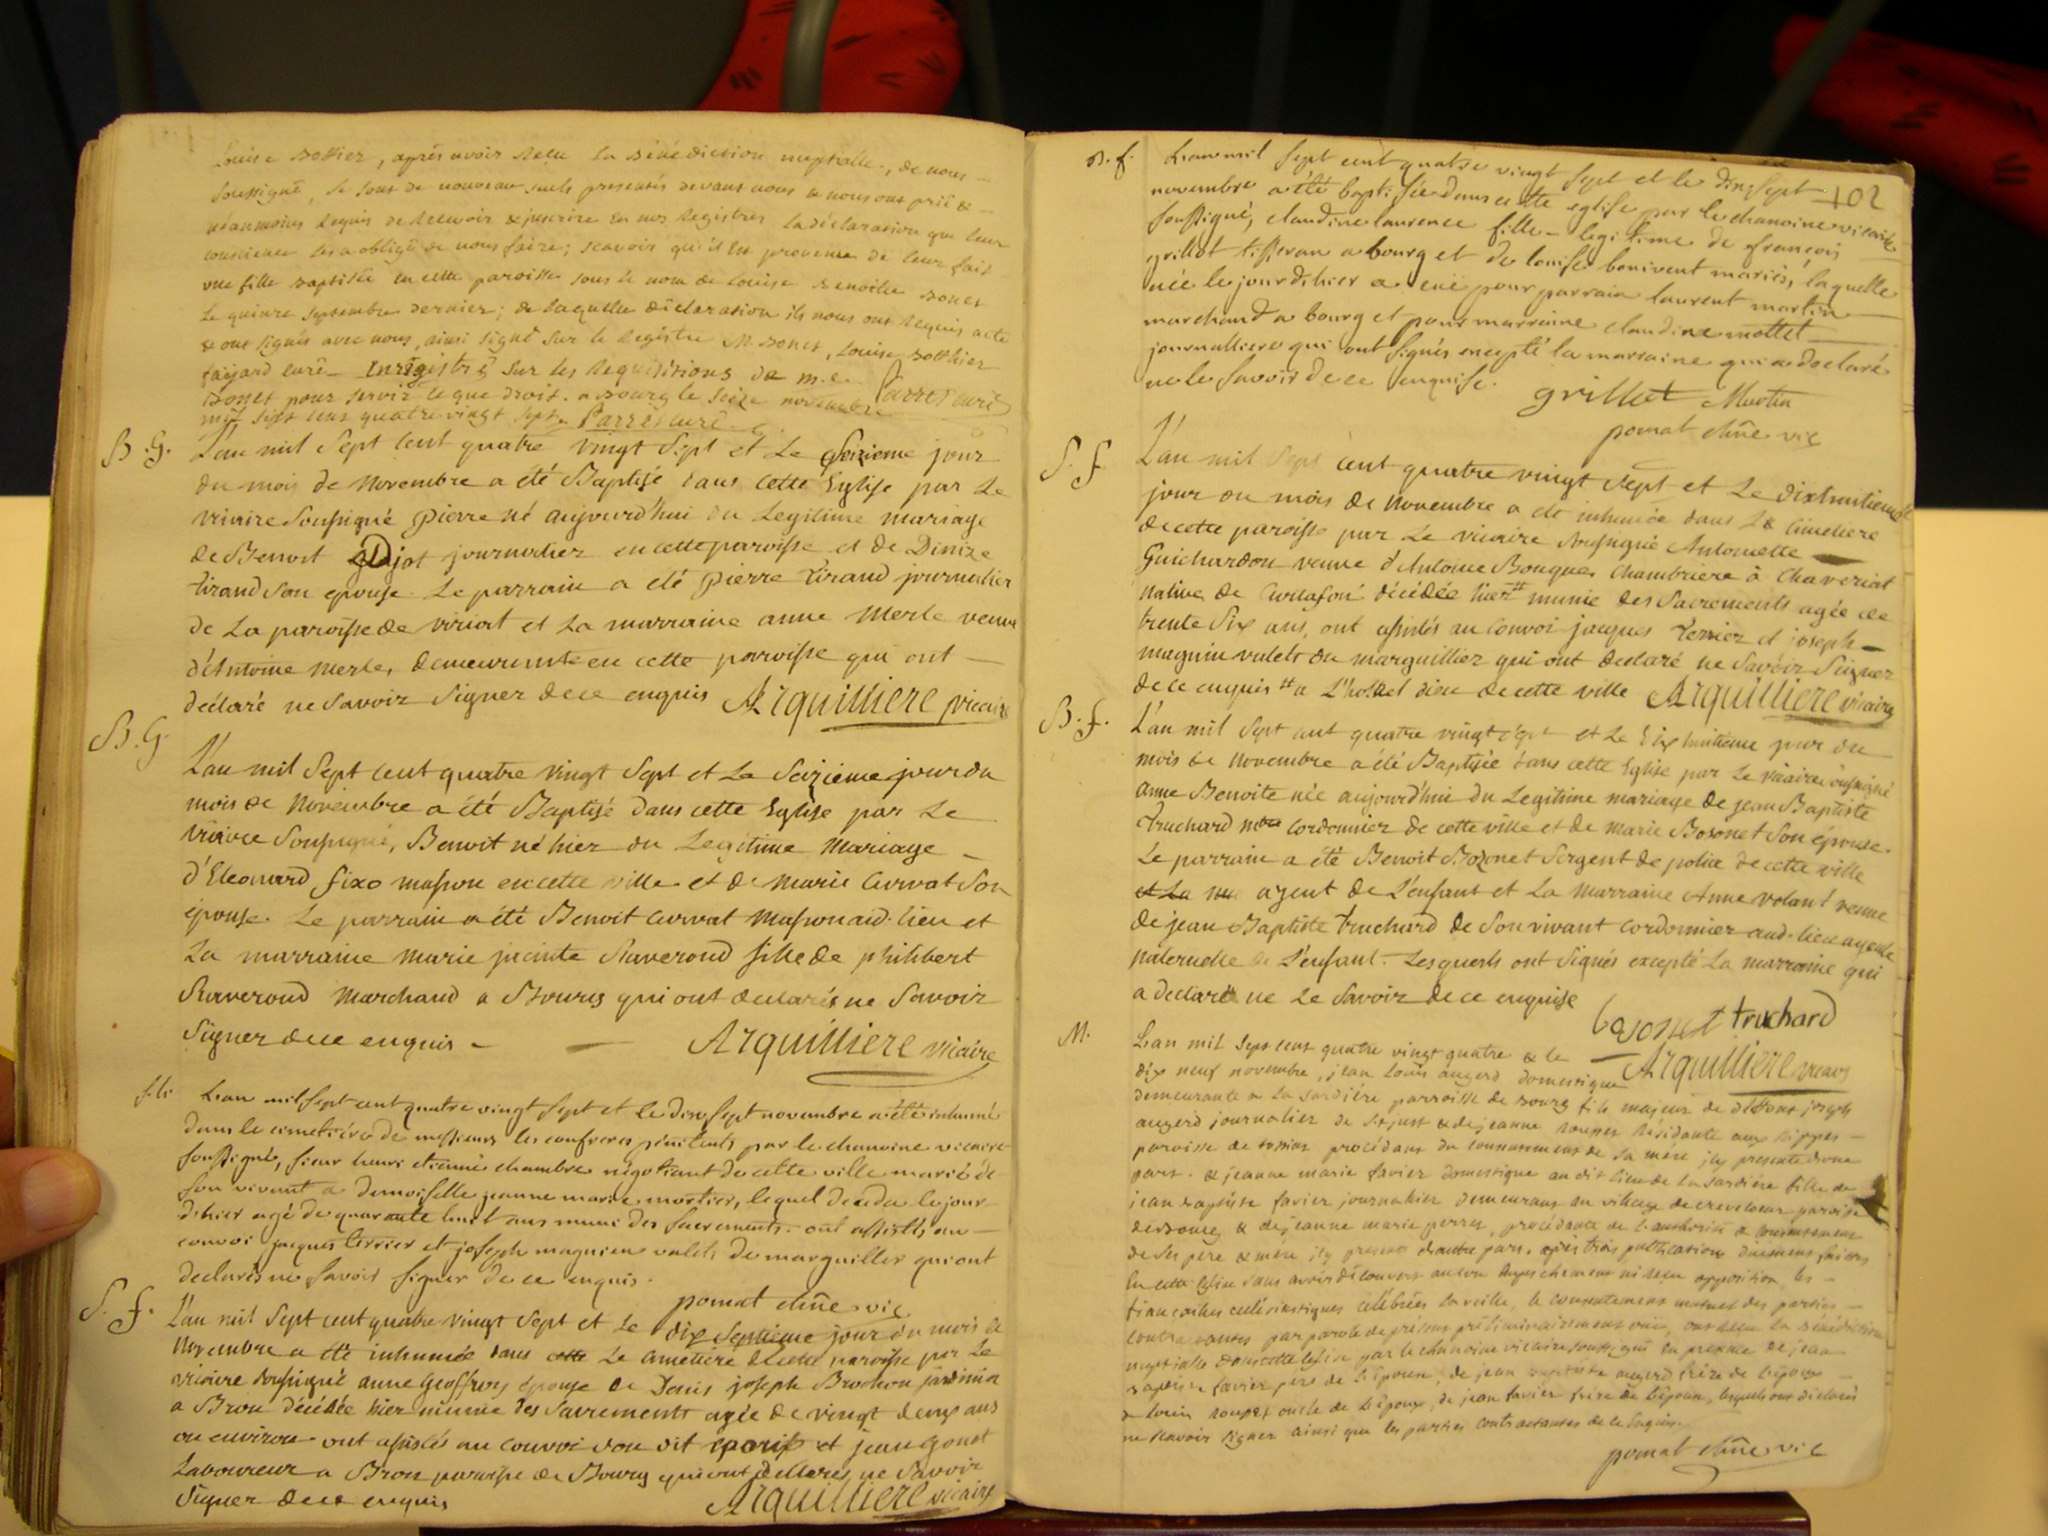 Louise Bottier, après avoir Reçu la Bénédiction nuptialle, de nous
soussigné, se sont de nouveau presentés devant nous & nous ont prié &
néanmoins Requis de Recevoir & inscrire en nos Registres la déclaration que leur
conscience les a obligé de nous faire; scavoir qu'il est provenu de leur fait
une fille Baptisée en cette paroisse sous le nom de Louise Benoite Bonet
le quinze septembre dernier; de laquelle déclaration ils nous ont Requis acte
& ont signés avec nous, ainsi signé sur le Registre M. Bonet, Louise Botthier
curé Enregistré sur les Requisitions de m.e.
Bonet pour servir ce que droit. a Bourg le seize novembre
mil sept cent quatre vingt sept. Parret curé
B. G. L'an mil Sept Cent quatre vingt Sept et Le Seizieme jour
du mois de Novembre a été Baptisé dans Cette Eglise par Le
vicaire Soussigné Pierre né aujourd'hui du Legitime mariage
de Benoit journalier en cette paroisse et de Dinize
tirand Son epouse. Le parrain a été pierre tirand journalier
de La paroisse de viriat et La marraine anne Merle veuve
d'Antoine Merle, demeurante en cette paroisse qui ont
déclaré ne Savoir Signer de ce enquis Arquilliere vicaire
B. G. L'an mil Sept Cent quatre vingt Sept et Le Seizieme jour du
mois de Novembre a été Baptisé dans cette Eglise par Le
vicaire Soussigné, Benoit né hier du Legitime Mariage
d'Eleonard fixo masson en cette ville et de Marie Curvat Son
épouse. Le parrain a été Benoit Curvat Masson aud. lieu et
La marraine Marie jacinte Raveroud fille de philibert
Raveroud Marchand a Bourg qui ont declarés ne Savoir
Signer de ce enquis Arquilliere vicaire
L'an mil sept cent quatre vingt sept et le dix sept novembre a été inhumé
dans le cimetiere de messieurs les confreres penitents par le chanoine vicaire
soussigné, sieur henri etienne chambre négotiant de cette ville marié de
son vivant a demoiselle jeanne marie mortier, lequel decedu le jour
d'hier agé de quarante huit ans muni des Sacrements. ont assistés au
convoi jacques terrier et joseph magnien valets de marguillier qui ont
declarés ne savoir signer de ce enquis.
pomat chne vic
S. f. L'an mil Sept cent quatre vingt Sept et Le dix Septieme jour du mois de
Novembre a été inhumée dans Le Cimetiere de cette paroisse par Le
vicaire soussigné anne Geoffroy épouse de Denis joseph Brochon jardinier
a Brou décédée hier munie des Sacrements agée de vingt deux ans
ou environ ont assistés au Convoi son dit et jean Gonet
Laboureur a Brou paroisse de Bourg qui ont declarés ne Savoir
Signer de ce enquis Arquilliere vicaire
102
B. f. L'an mil sept cent quatre vingt sept et le dix sept
novembre a été baptisée dans cette eglise par le chanoine vicaire
soussigné, claudine laurence fille legitime de françois
grillet tisseran a bourg et de louise bonivent mariés, laquelle
née le jour d'hier a eüe pour parrain laurent martin
marchand a bourg et pour marraine claudine mottet
journaliere qui ont signés excepté la marraine qui a declaré
ne le savoir de ce enquise. grillet Martin
pomat chne vic
S. f. L'an mil Sept cent quatre vingt Sept et Le dixhuitieme
jour du mois de Novembre a été inhumée dans Le Cimetiere
de cette paroisse par Le vicaire Soussigné Antoinette
Guichardon veuve d'Antoine Chambriere à Chaveriat
native de décédée hier # munie des Sacrements agée de
trente Six ans, ont assistés au Convoi jacques terrier et joseph
magnin valets du marguillier qui ont declaré ne Savoir Signer
de ce enquis # a L'hostel dieu de cette ville Arquilliere vicaire
B. f. L'an mil Sept cent quatre vingt Sept et Le dix huitieme jour du
mois de Novembre a été Baptisée dans cette Eglise par Le vicaire soussigné
anne Benoite née aujourd'hui du Legitime mariage de jean Baptiste
truchard mtre Cordonnier de cette ville et de Marie Bozonet Son épouse.
Le parrain a été Benoit Bozonet Sergent de police de cette ville
et La ma ayeul de L'enfant et La Marraine Anne volant veuve
de jean Baptiste truchard de Son vivant Cordonnier aud. lieu ayeule
paternelle de L'enfant. Lesquels ont Signés excepté La marraine qui
a declaré ne Le Savoir de ce enquise bosonet truchard
Arquilliere vicaire
M. L'an mil sept cent quatre vingt quatre & le
dix neuf novembre, jean Louis augerd domestique
demeurante a La Sardiere parroisse de Bourg fils majeur de défunt joseph
augerd journalier de St just & de jeanne Rousset Résidante aux Rippes
paroisse de procédant du consentement de sa mère icy presente d'une
part. & jeanne marie favier domestique au dit lieu de la Sardiere fille de
jean Baptiste favier journalier demeurant au village de crevecoeur paroisse
de Bourg & de jeanne marie perret, procédante de L'authorité & consentement
de ses pere & mère icy présents d'autre part. après trois publications duement faittes
en cette Eglise sans avoir découvert aucun empechement ni Reçu opposition, les
fiancailles ecclésiastiques célébrées la veille, le consentement mutuel des parties
contractantes par parole de présent préliminairement ouie, ont Reçu la Bénédiction
nuptiale dans cette Eglise par le chanoine vicaire soussigné en presence de jean
Baptiste favier père de L'épouse, de jean Baptiste augerd frère de l'époux
& Louis Rousset oncle de L'époux, de jean favier frère de L'épouse, lesquels ont déclaré
ne scavoir signer ainsi que les parties contractantes de ce Enquises.
pomat chne vic